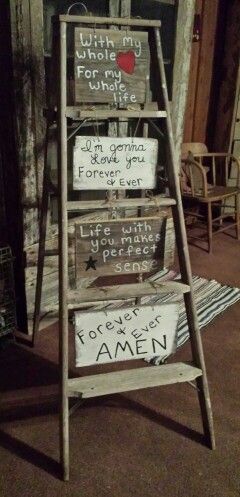 With my
whole
For my
whole
life
I'm gonna
Love you
Forever
& Ever
Life with
you makes
perfect
sense
Forever
& Ever
AMEN